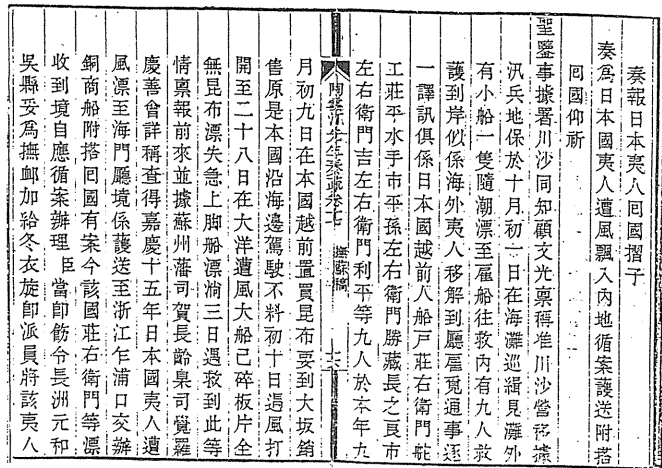 奏報日本夷人回國摺子
奏爲日本國夷人遭風飄入內地循案護送附搭
回國仰祈
聖鑒事據署川沙同知顧文光稟稱准川沙營移據
汛兵地保於十月初一日在海灘巡緝見灘外
有小船一隻隨潮漂至雇船往救內有九人救
護到岸似係海外夷人移解到廳雇覓通事逐
一譯訊俱係日本國越前人船戶莊右衛門舵
工莊平水手市平孫左右衛門勝藏長之良市
左右衛門吉左右衛門利平等九人於本年九
陶雲汀先生奏疏卷十七 撫蘇稿
月初九日在本國越前置買昆布要到大坂銷
售原是本國沿海邊駕駛不料初十日遇風打
開至二十八日在大洋遭風大船已碎板片全
無昆布漂失急上脚船漂淌三日遇救到此等
情稟報前來並據蘇州藩司賀長齡臬司覺羅
慶善會詳稱查得嘉慶十五年日本國夷人遭
風漂至海門廳境係護送至浙江乍浦口交辦
銅商船附搭回國有案今該國莊右衛門等漂
收到境自應循案辦理臣當卽飭令長洲元和
吳縣妥爲撫卹加給冬衣旋卽派員將該夷人